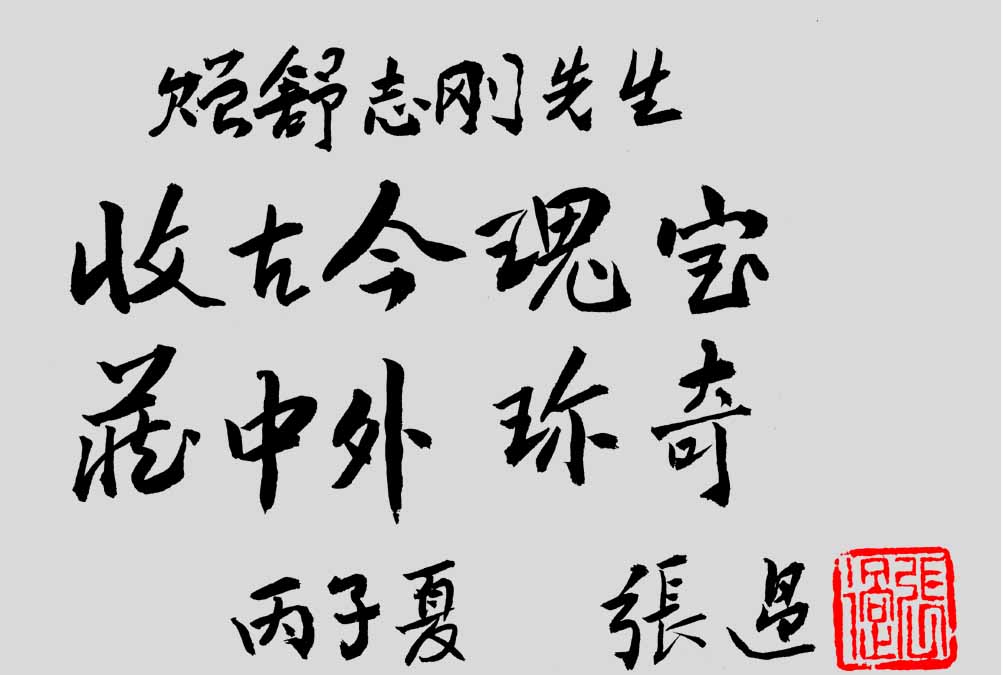 赠舒志刚先生
收古今瑰宝
藏中外珍奇
丙子夏 張過